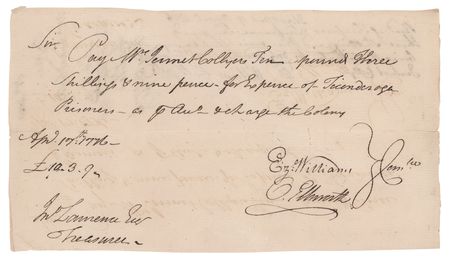 Sir
Pay Mrs Jennet Collyers Ten pound Three
Shillings & nine pence - for Expence of Ticonderoga
Prisoners - as pr Acct & charge the Colony
Apl 17th 1776
£10.3.9
Ezr Williams
O. Ellsworth
Comtee
Jno Lawrence Esqr
Treasurer